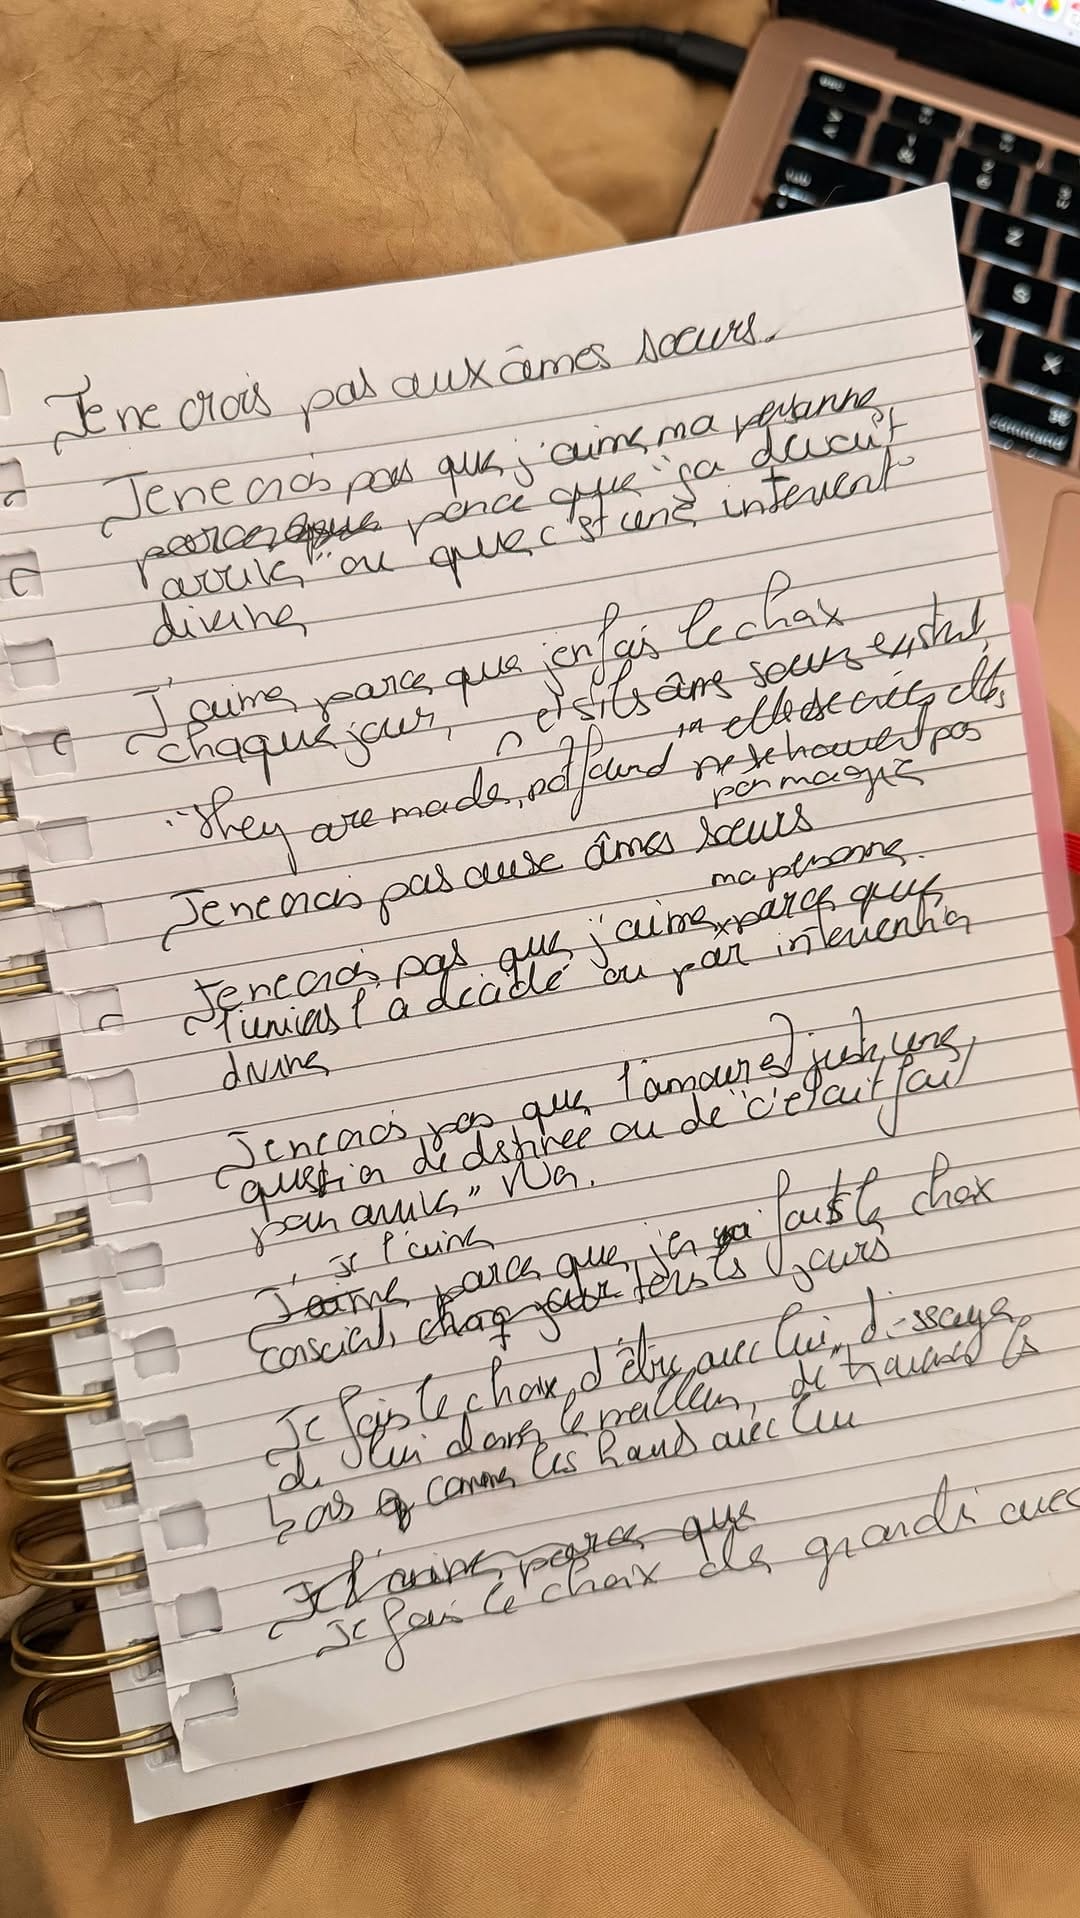 Je ne crois pas aux âmes sœurs.
Je ne crois pas que j'aime ma personne
parce que parce que "ça devait
arriver" ou que c'est une intervent°
divine
J'aime parce que j'en fais le choix
chaque jour, et si les âmes sœurs existent,
"They are made, not found" elles se créent, elles
ne se trouvent pas
par magie
Je ne crois pas aux âmes sœurs
ma personne.
Je ne crois pas que j'aime parce que
l'univers l'a décidé ou par intervention
divine
Je ne crois pas que l'amour est juste une
question de destinée ou de "c'était fait
pour arriver" Non.
je l'aime
J'aime parce que j'en fais le choix
conscient, chaq jour tous les jours
Je fais le choix d'être avec lui, d'essayer
de lui donner le meilleur, de traverser les
bas comme les hauts avec lui
Je l'aime parce que
Je fais le choix de grandir avec
command
Z
S
X